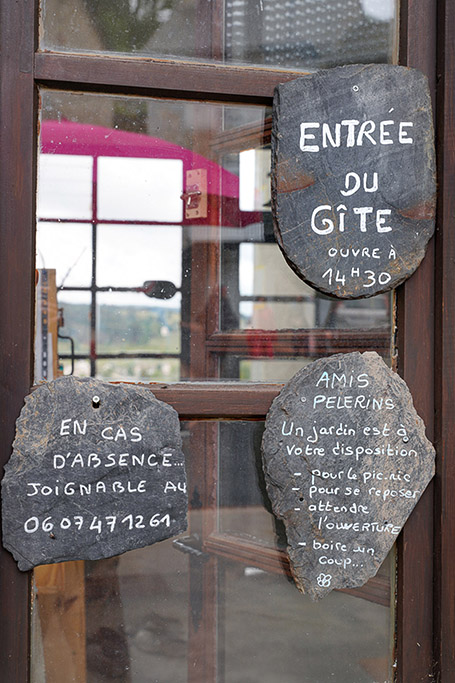 ENTRÉE
DU
GÎTE
OUVRE À
14H30
EN CAS
D'ABSENCE...
JOIGNABLE AU
06 07 47 12 61
AMIS
PELERINS
Un jardin est à
votre disposition
- pour le pic.nic
- pour se reposer
- attendre
l'OUVERTURE
- boire un
coup...